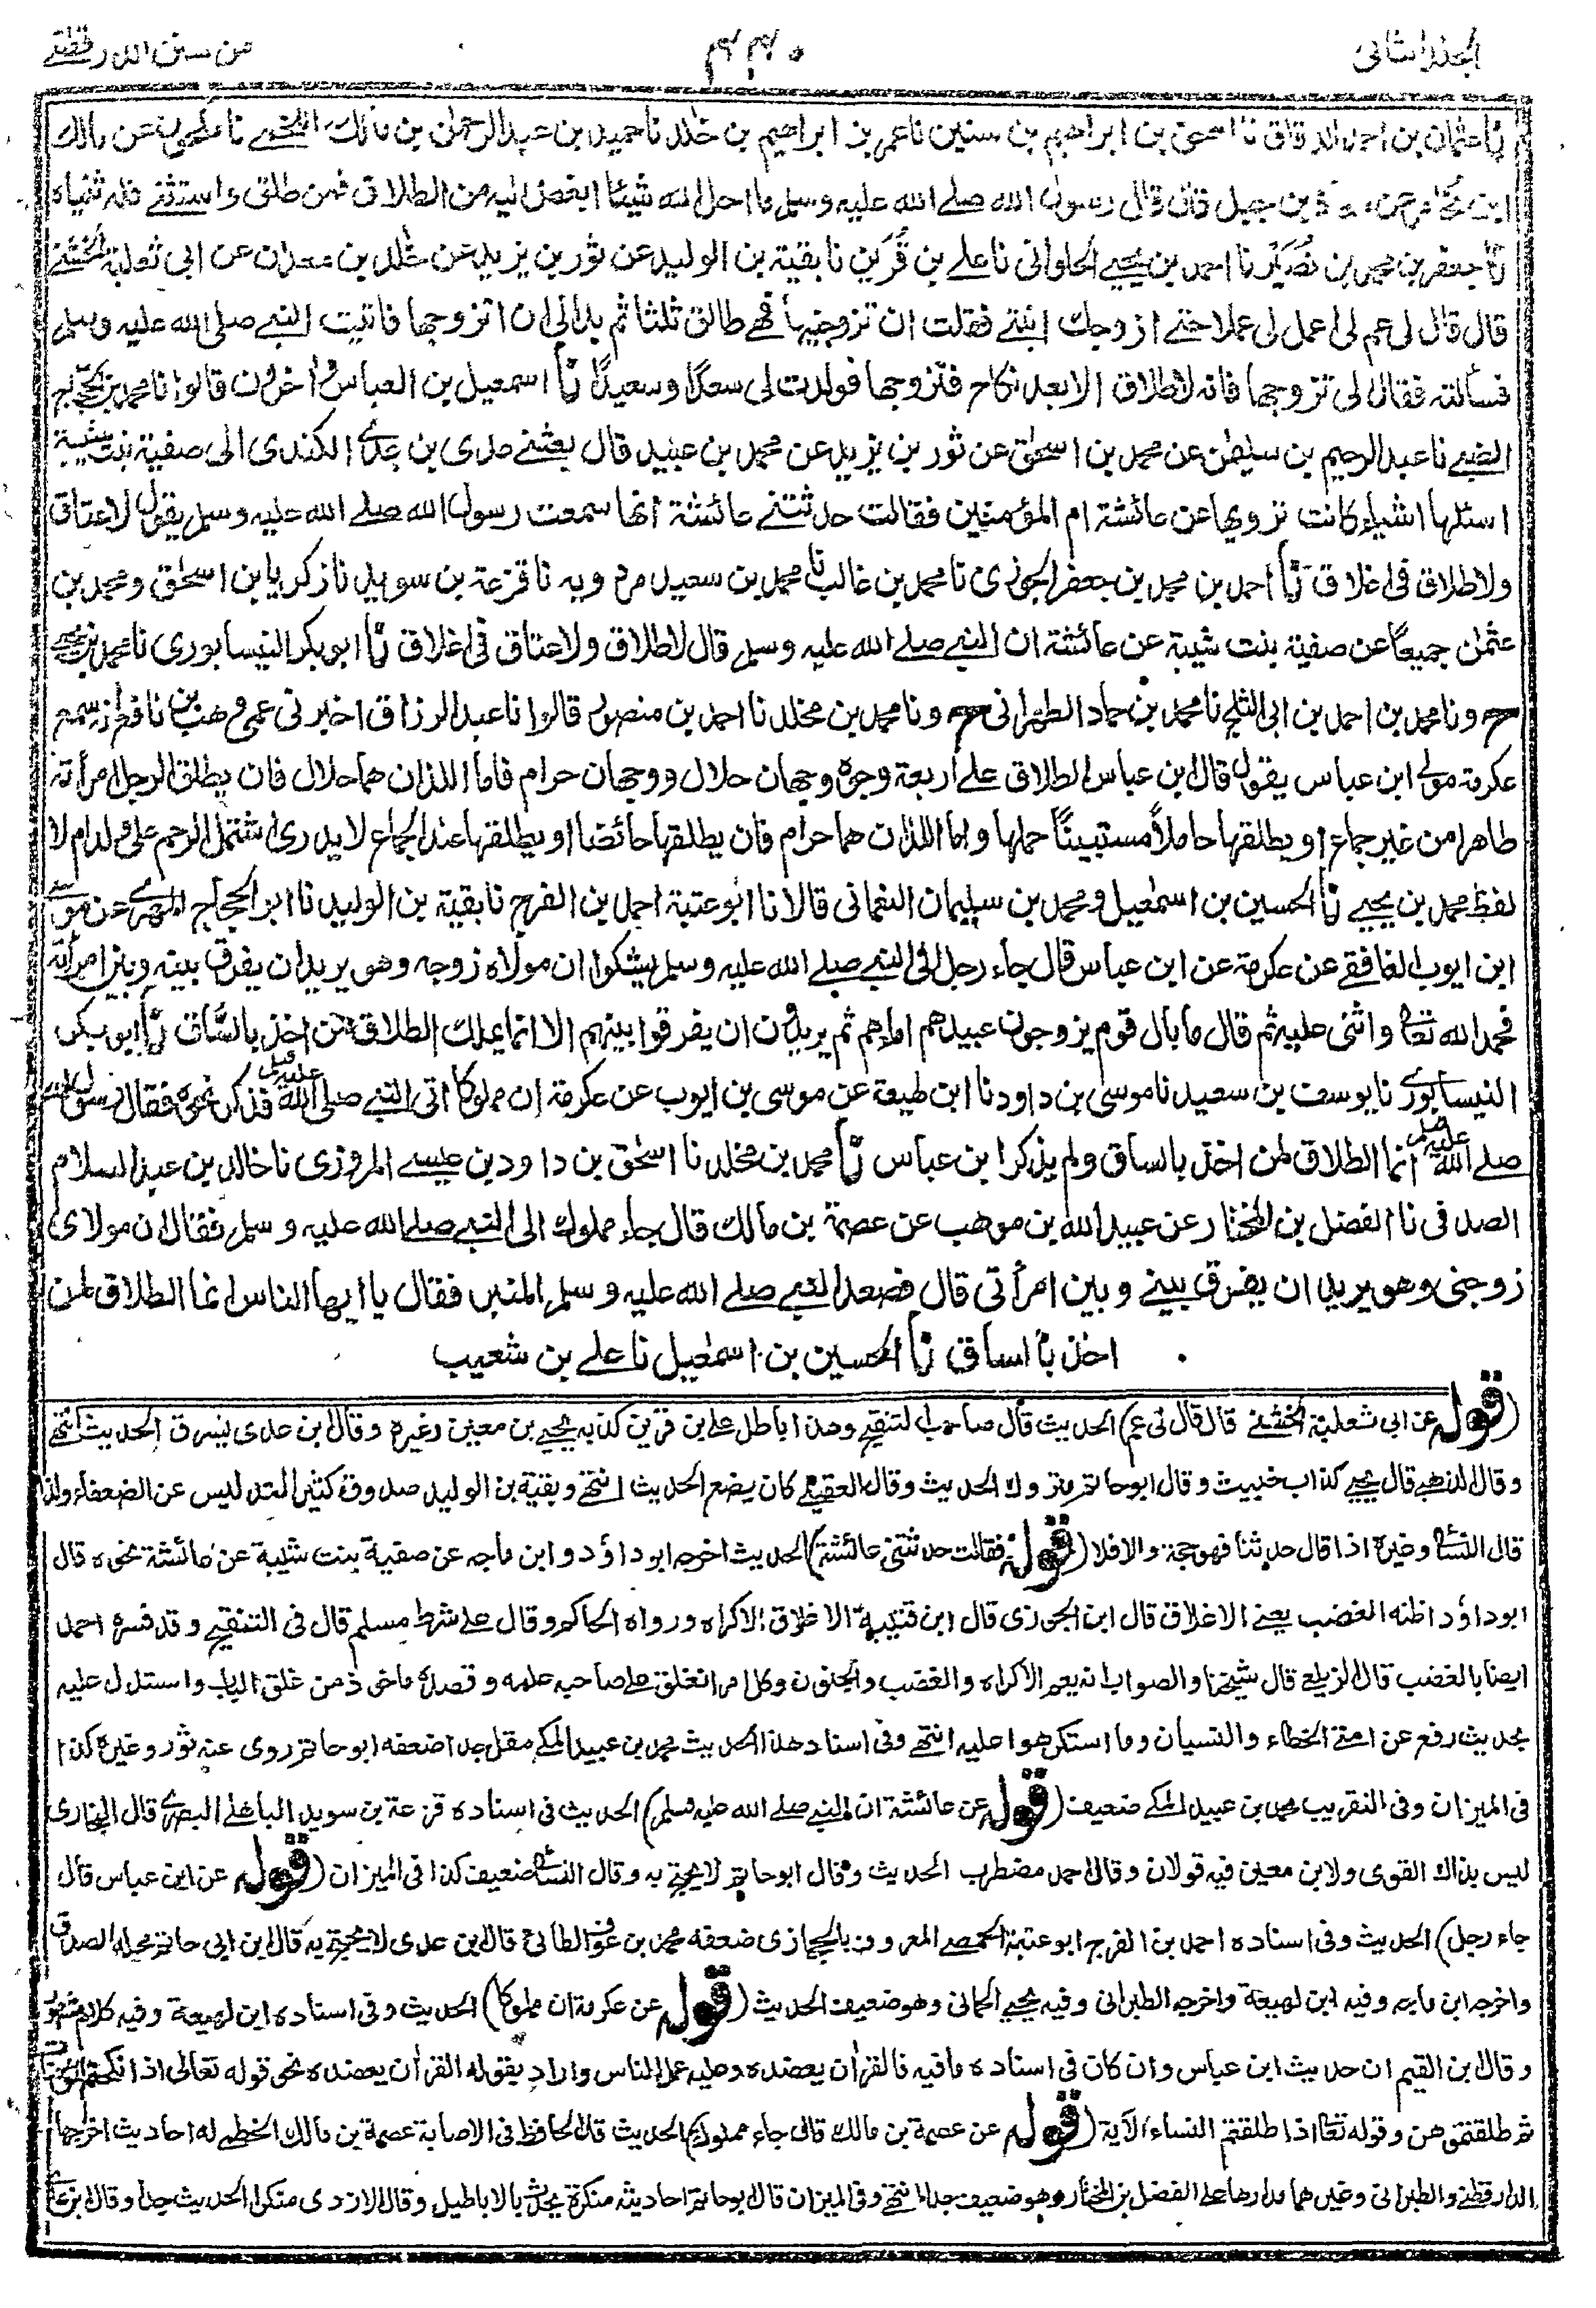 الجلد الثاني
۴۴۰
من سنن الدارقطني
نا عثمان بن احمد الدقاق نا اسحق بن ابراهيم بن سنين نا عمر بن ابراهيم بن خالد نا حميد بن عبد الرحمن بن مالك اللخمي نا مكحول عن مالك
ابن يخامر عن معاذ بن جبل قال قال رسول الله صلے الله عليه وسلم ما احل الله شيئا ابغض اليه من الطلاق فمن طلق واستثنى فله ثنياه
نا جعفر بن محمد بن نصير نا احمد بن يحيے الحلواني نا علے بن قرين نا بقية بن الوليد عن ثور بن يزيد عن خالد بن معدان عن ابي ثعلبة الخشنے
قال قال لى عم لى اعمل لى عملا حتے ازوجك ابنتے فقلت ان تزوجنيها فهے طالق ثلثا ثم بدا لى ان اتزوجها فاتيت النبے صلى الله عليه وسلم
فسألته فقال لى تزوجها فانه لا طلاق الا بعد نكاح فتزوجها فولدت لى سعدا وسعيدا نا اسمعيل بن العباس واخرون قالوا نا محمد بن الحجاج
الضبے نا عبد الرحيم بن سليمن عن محمد بن اسحق عن ثور بن يزيد عن محمد بن عبيد قال بعثنے عدى بن عدے الكندى الى صفية بنت شيبة
اسئلها اشياء كانت ترويها عن عائشة ام المؤمنين فقالت حدثتنے عائشة انها سمعت رسول الله صلے الله عليه وسلم يقول لا عتاق
ولا طلاق فى اغلاق نا احمد بن محمد بن جعفر الجوزى نا محمد بن غالب نا محمد بن سعيد مردويه نا قزعة بن سويد نا زكريا بن اسحق ومحمد بن
عثمن جميعا عن صفية بنت شيبة عن عائشة ان النبے صلے الله عليه وسلم قال لا طلاق ولا عتاق فى اغلاق نا ابو بكر النيسابورى نا محمد بن يحيے
ح ونا محمد بن احمد بن ابى الثلج نا محمد بن حماد الطهرانى ح ونا محمد بن مخلد نا احمد بن منصور قالوا نا عبد الرزاق اخبرنى عمى وهب بن نافع انه سمع
عكرمة مولى ابن عباس يقول قال ابن عباس الطلاق على اربعة وجوه وجهان حلال ووجهان حرام فاما اللذان هما حلال فان يطلق الرجل امرأته
طاهرا من غير جماع او يطلقها حاملا مستبينا حملها واما اللذان هما حرام فان يطلقها حائضا او يطلقها عند الجماع لا يدرى اشتمل الرحم على ولد ام لا
لفظ محمد بن يحيے نا الحسين بن اسمعيل ومحمد بن سليمان النعمانى قالا نا ابو عتبة احمد بن الفرج نا بقية بن الوليد نا ابو الحجاج المهرے عن موسى
ابن ايوب الغافقے عن عكرمة عن ابن عباس قال جاء رجل الى النبے صلے الله عليه وسلم يشكوا ان مولاه زوجه وهو يريد ان يفرق بينه وبين امرأته
فحمد الله تعا واثنى عليه ثم قال ما بال قوم يزوجون عبيدهم اماءهم ثم يريدون ان يفرقوا بينهم الا انما يملك الطلاق من اخذ بالساق نا ابو بكر
النيسابورے نا يوسف بن سعيد نا موسى بن داود نا ابن لهيعة عن موسى بن ايوب عن عكرمة ان مملوكا اتى النبے صلى الله عليه وسلم فذكر نحوه فقال رسول الله
صلے الله عليه وسلم انما الطلاق لمن اخذ بالساق ولم يذكر ابن عباس نا محمد بن مخلد نا اسحق بن داود بن عيسے المروزى نا خالد بن عبد السلام
الصدفى نا الفضل بن المختار عن عبيد الله بن موهب عن عصمة بن مالك قال جاء مملوك الى النبے صلے الله عليه وسلم فقال ان مولاى
زوجنى وهو يريد ان يفرق بينے وبين امرأتى قال فصعد النبے صلے الله عليه وسلم المنبر فقال يا ايها الناس انما الطلاق لمن
اخذ بالساق نا الحسين بن اسمعيل نا علے بن شعيب
(قوله عن ابى ثعلبة الخشنے قال قال لى عم) الحديث قال صاحب التنقيح وهذا باطل علے بن قرين كذبه يحيے بن معين وغيره وقال ابن عدى يسرق الحديث انتهے
وقال الذهبے قال يحيے كذاب خبيث وقال ابو حاتم متروك الحديث وقال العقيلے كان يضع الحديث انتهے وبقية بن الوليد صدوق كثير التدليس عن الضعفاء ولذا
قال النسائے وغيره اذا قال حدثنا فهو حجة والا فلا (قوله فقالت حدثتنى عائشة) الحديث اخرجه ابو داؤد وابن ماجه عن صفية بنت شيبة عن عائشة نحوه قال
ابو داؤد اظنه الغضب يعنے الاغلاق قال ابن الجوزى قال ابن قتيبة الاغلاق الاكراه ورواه الحاكم وقال على شرط مسلم قال فى التنقيح وقد فسره احمد
ايضا بالغضب قال الزيلعے قال شيخنا والصواب انه يعم الاكراه والغضب والجنون وكل امر انغلق علے صاحبه علمه وقصده ماخوذ من غلق الباب واستدل عليه
بحديث رفع عن امتے الخطاء والنسيان وما استكرهوا عليه انتهے وفى اسناد هذا الحديث محمد بن عبيد المكے مقل جدا ضعفه ابو حاتم روى عنه ثور وغيره كذا
فى الميزان وفى التقريب محمد بن عبيد المكے ضعيف (قوله عن عائشة ان النبے صلے الله عليه وسلم) الحديث فى اسناده قزعة بن سويد الباهلے البصرے قال البخارى
ليس بذاك القوى ولابن معين فيه قولان وقال احمد مضطرب الحديث وقال ابو حاتم لا يحتج به وقال النسائے ضعيف كذا فى الميزان (قوله عن ابن عباس قال
جاء رجل) الحديث وفى اسناده احمد بن الفرج ابو عتبة الحمصے المعروف بالحجازى ضعفه محمد بن عوف الطائى قال ابن عدى لا يحتج به قال ابن ابى حاتم محله الصدق
واخرجه ابن ماجه وفيه ابن لهيعة واخرجه الطبرانى وفيه يحيے الحمانى وهو ضعيف الحديث (قوله عن عكرمة ان مملوكا) الحديث وفى اسناده ابن لهيعة وفيه كلام مشهور
وقال ابن القيم ان حديث ابن عباس وان كان فى اسناده ما فيه فالقرآن يعضده وعليه عمل الناس واراد بقوله القرآن يعضده نحو قوله تعالى اذا نكحتم المؤمنات
ثم طلقتموهن وقوله تعا اذا طلقتم النساء الآية (قوله عن عصمة بن مالك قال جاء مملوك) الحديث قال الحافظ فى الاصابة عصمة بن مالك الخطمے له احاديث اخرجها
الدارقطنے والطبرانى وغيرهما مدارها على الفضل بن المختار وهو ضعيف جدا انتهے وفى الميزان قال ابو حاتم احاديثه منكرة يحدث بالاباطيل وقال الازدى منكر الحديث جدا وقال ابن عدے